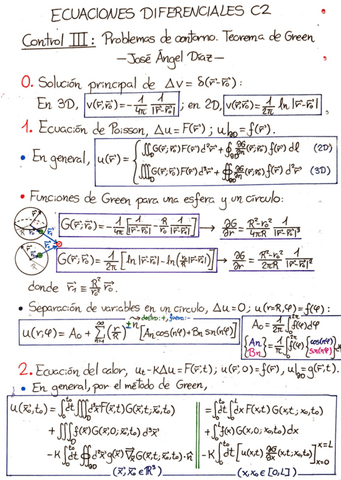 ECUACIONES DIFERENCIALES C2
Control III: Problemas de contorno. Teorema de Green
— José Ángel Díaz —
0. Solución principal de Δv = δ(r⃗-r⃗₀):
En 3D, v(r⃗;r⃗₀) = -1/4π 1/|r⃗-r⃗₀| ; en 2D, v(r⃗;r⃗₀) = 1/2π ln|r⃗-r⃗₀|
1. Ecuación de Poisson, Δu = F(r⃗) ; u|∂D = f(r⃗).
• En general, u(r⃗) =
∬D G(r⃗;r⃗₀) F(r⃗) d²r⃗ + ∮∂D ∂G/∂n (r⃗;r⃗₀) f(r⃗) dl (2D)
∭D G(r⃗;r⃗₀) F(r⃗) d³r⃗ + ∯∂D ∂G/∂n (r⃗;r⃗₀) f(r⃗) d²r⃗ (3D)
• Funciones de Green para una esfera y un círculo:
G(r⃗;r⃗₀) = -1/4π [1/|r⃗-r⃗₀| - R/r₀ 1/|r⃗-r⃗₁|] → ∂G/∂r = R²-r₀²/4πR 1/|r⃗-r⃗₀|³
G(r⃗;r⃗₀) = -1/2π [ln|r⃗-r⃗₀| - ln(r₀/R |r⃗-r⃗₁|)] → ∂G/∂r = R²-r₀²/2πR 1/|r⃗-r⃗₀|²
donde r⃗₁ ≡ R²/r₀² r⃗₀.
• Separación de variables en un círculo, Δu=0; u(r=R,φ) = f(φ):
dentro: +, fuera: -
u(r,φ) = A₀ + Σ (r/R)^±n [An cos(nφ) + Bn sin(nφ)]
A₀ = 1/2π ∫ f(φ) dφ
{An Bn} = 1/π ∫ f(φ) {cos(nφ) sin(nφ)} dφ
2. Ecuación del calor, ut - KΔu = F(r⃗,t); u(r⃗,0) = f(r⃗), u|∂D = g(r⃗,t).
• En general, por el método de Green,
u(x⃗₀,t₀) = ∫dt ∭ d³x F(x⃗,t) G(x⃗,t; x⃗₀,t₀) = ∫dt ∫dx F(x,t) G(x,t; x₀,t₀)
+ ∭D f(x⃗) G(x⃗,0; x⃗₀,t₀) d³x⃗ + ∫ f(x) G(x,0; x₀,t₀) dx
- K ∫dt ∯∂D d²x g(x⃗) ∇x⃗ G(x⃗,t; x⃗₀,t₀)·n⃗ - K ∫dt [u(x,t) ∂G/∂x (x,t; x₀,t₀)] x=L x=0
(x⃗, x⃗₀ ∈ ℝ³) (x, x₀ ∈ [0,L])